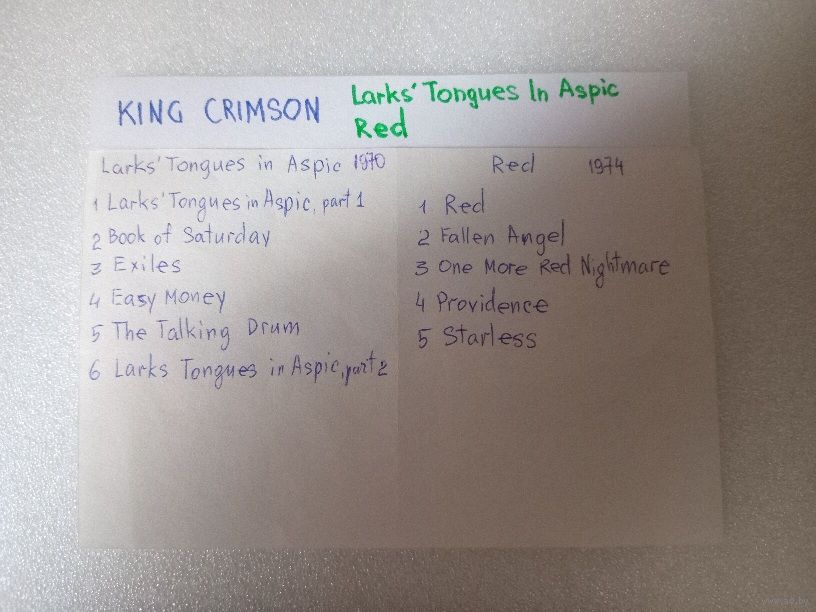 KING CRIMSON
Larks' Tongues In Aspic
Red
Larks' Tongues in Aspic 1970
1 Larks' Tongues in Aspic, part 1
2 Book of Saturday
3 Exiles
4 Easy Money
5 The Talking Drum
6 Larks Tongues in Aspic, part 2
Red 1974
1 Red
2 Fallen Angel
3 One More Red Nightmare
4 Providence
5 Starless